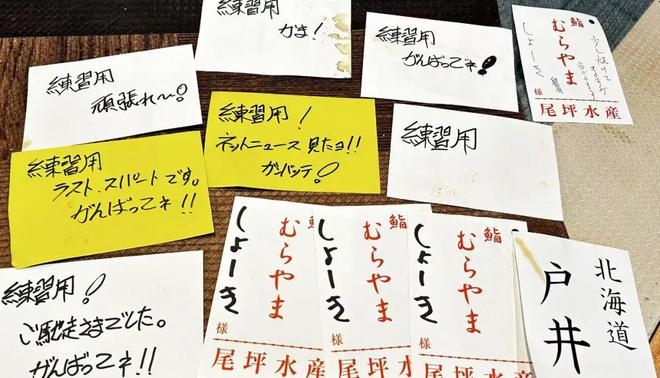 練習用
かま!
練習用
がんばってネ!
鮨
むらやま
しょーき
様
尾坪水産
練習用
頑張れ〜!
練習用!
ネットニュース見たヨ!!
ガンバッテ!
練習用
練習用
ラスト、スパートです。
がんばってネ!!
練習用!
ご馳走さまでした。
がんばってネ!!
鮨
むらやま
しょーき
様
尾坪水産
鮨
むらやま
しょーき
様
尾坪水産
鮨
むらやま
しょーき
様
尾坪水産
北海道
戸井